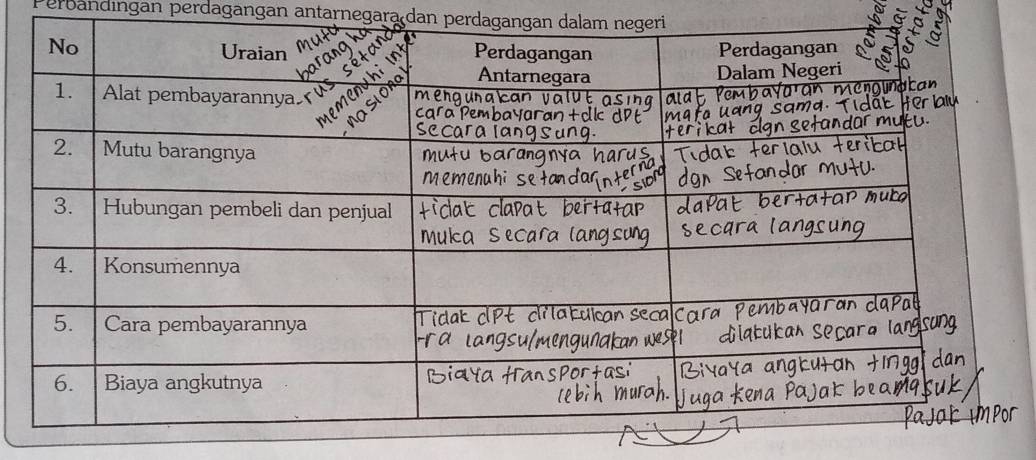 Perbandingan perdagangan antarnegara dan perdagangan dalam negeri
No Uraian Perdagangan Antarnegara Perdagangan Dalam Negeri
mutu
barang ha
rus setandar
memenuhi inter
-nasional.
Pembel
Penjual
bertata
langs
1. Alat pembayarannya
mengunakan valut asing
cara Pembayaran tdk dpt
secara langsung.
alat Pembayaran mengunakan
mata uang sama. Tidak terlalu
terikat dgn setandar mutu.
2. Mutu barangnya
mutu barangnya harus
memenuhi setandar interna
-sional
Tidak terlalu terikat
dgn setandar mutu.
3. Hubungan pembeli dan penjual
tidak dapat bertatap
muka secara langsung
dapat bertatap muka
secara langsung
4. Konsumennya
5. Cara pembayarannya
Tidak dpt dilakukan seca
-ra langsu/mengunakan wesel
cara pembayaran dapat
dilakukan secara langsung
6. Biaya angkutnya
Biaya transportasi
lebih murah.
Biyaya angkutan tinggi dan
juga kena Pajak beamasuk/
Pajak impor